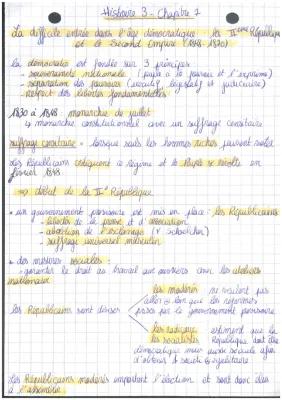 Histoire 3 - Chapitre 1
La difficile entrée dans l'âge démocratique : la IIème République
et le Second Empire (1848-1870)
la démocratie est fondée sur 3 principes
- souveraineté nationale (peuple a le pouvoir et l'exprime)
- séparation des pouvoirs (exécutif, législatif et judiciaire)
- respect des libertés fondamentales
1830 à 1848 monarchie de juillet
↳ monarchie constitutionnel avec un suffrage censitaire
suffrage censitaire = lorsque seuls les hommes riches peuvent voter
des Républicains critiquent ce régime et le Peuple se révolte en
février 1848
⇒ début de la IIe République
* un gouvernement provisoire est mis en place : les Républicains
- liberté de la presse et d'association
- abolition de l'esclavage (V. Schoelcher)
- suffrage universel masculin
* des mesures sociales :
- garantir le droit au travail aux ouvriers avec les ateliers
nationaux
les modérés ne veulent pas
aller + loin que les réformes
prises par le gouvernement provisoire
les Républicains sont divisés
les radicaux estiment que la
les socialistes République doit être
démocratique mais aussi sociale afin
d'obtenir + société égalitaire
Les Républicains modérés emportent l'élection et sont donc élus
à l'assemblée